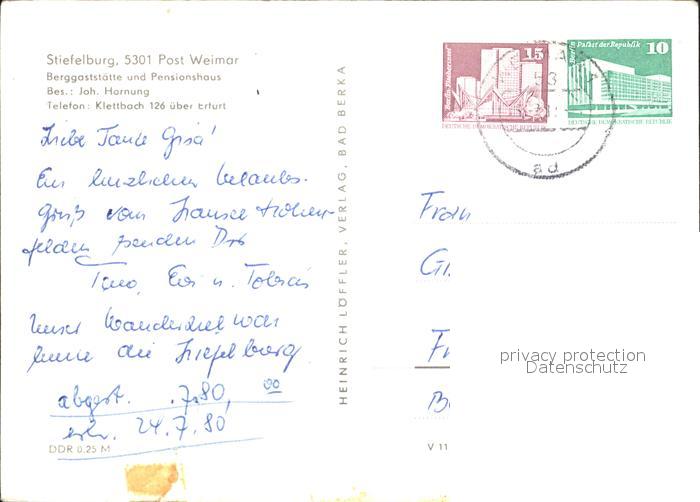 Stiefelburg, 5301 Post Weimar
Berggaststätte und Pensionshaus
Bes.: Joh. Hornung
Telefon: Klettbach 126 über Erfurt
Liebe Tante Gisa!
Ein herzlichen Urlaubs-
gruß vom Stausee Hohen-
felden senden Dir
Eva u. Tobias
Unser Wanderziel war
heute die Stiefelburg
abgest. .7.80, 00
erh. 24.7.80
DDR 0,25 M
HEINRICH LÖFFLER, VERLAG, BAD BERKA
V 11
Berlin Stadtzentrum
15
DEUTSCHE DEMOKRATISCHE REPUBLIK
Berlin Palast der Republik
10
DEUTSCHE DEMOKRATISCHE REPUBLIK
53
ad
Frau
G
Fr
B
privacy protection
Datenschutz